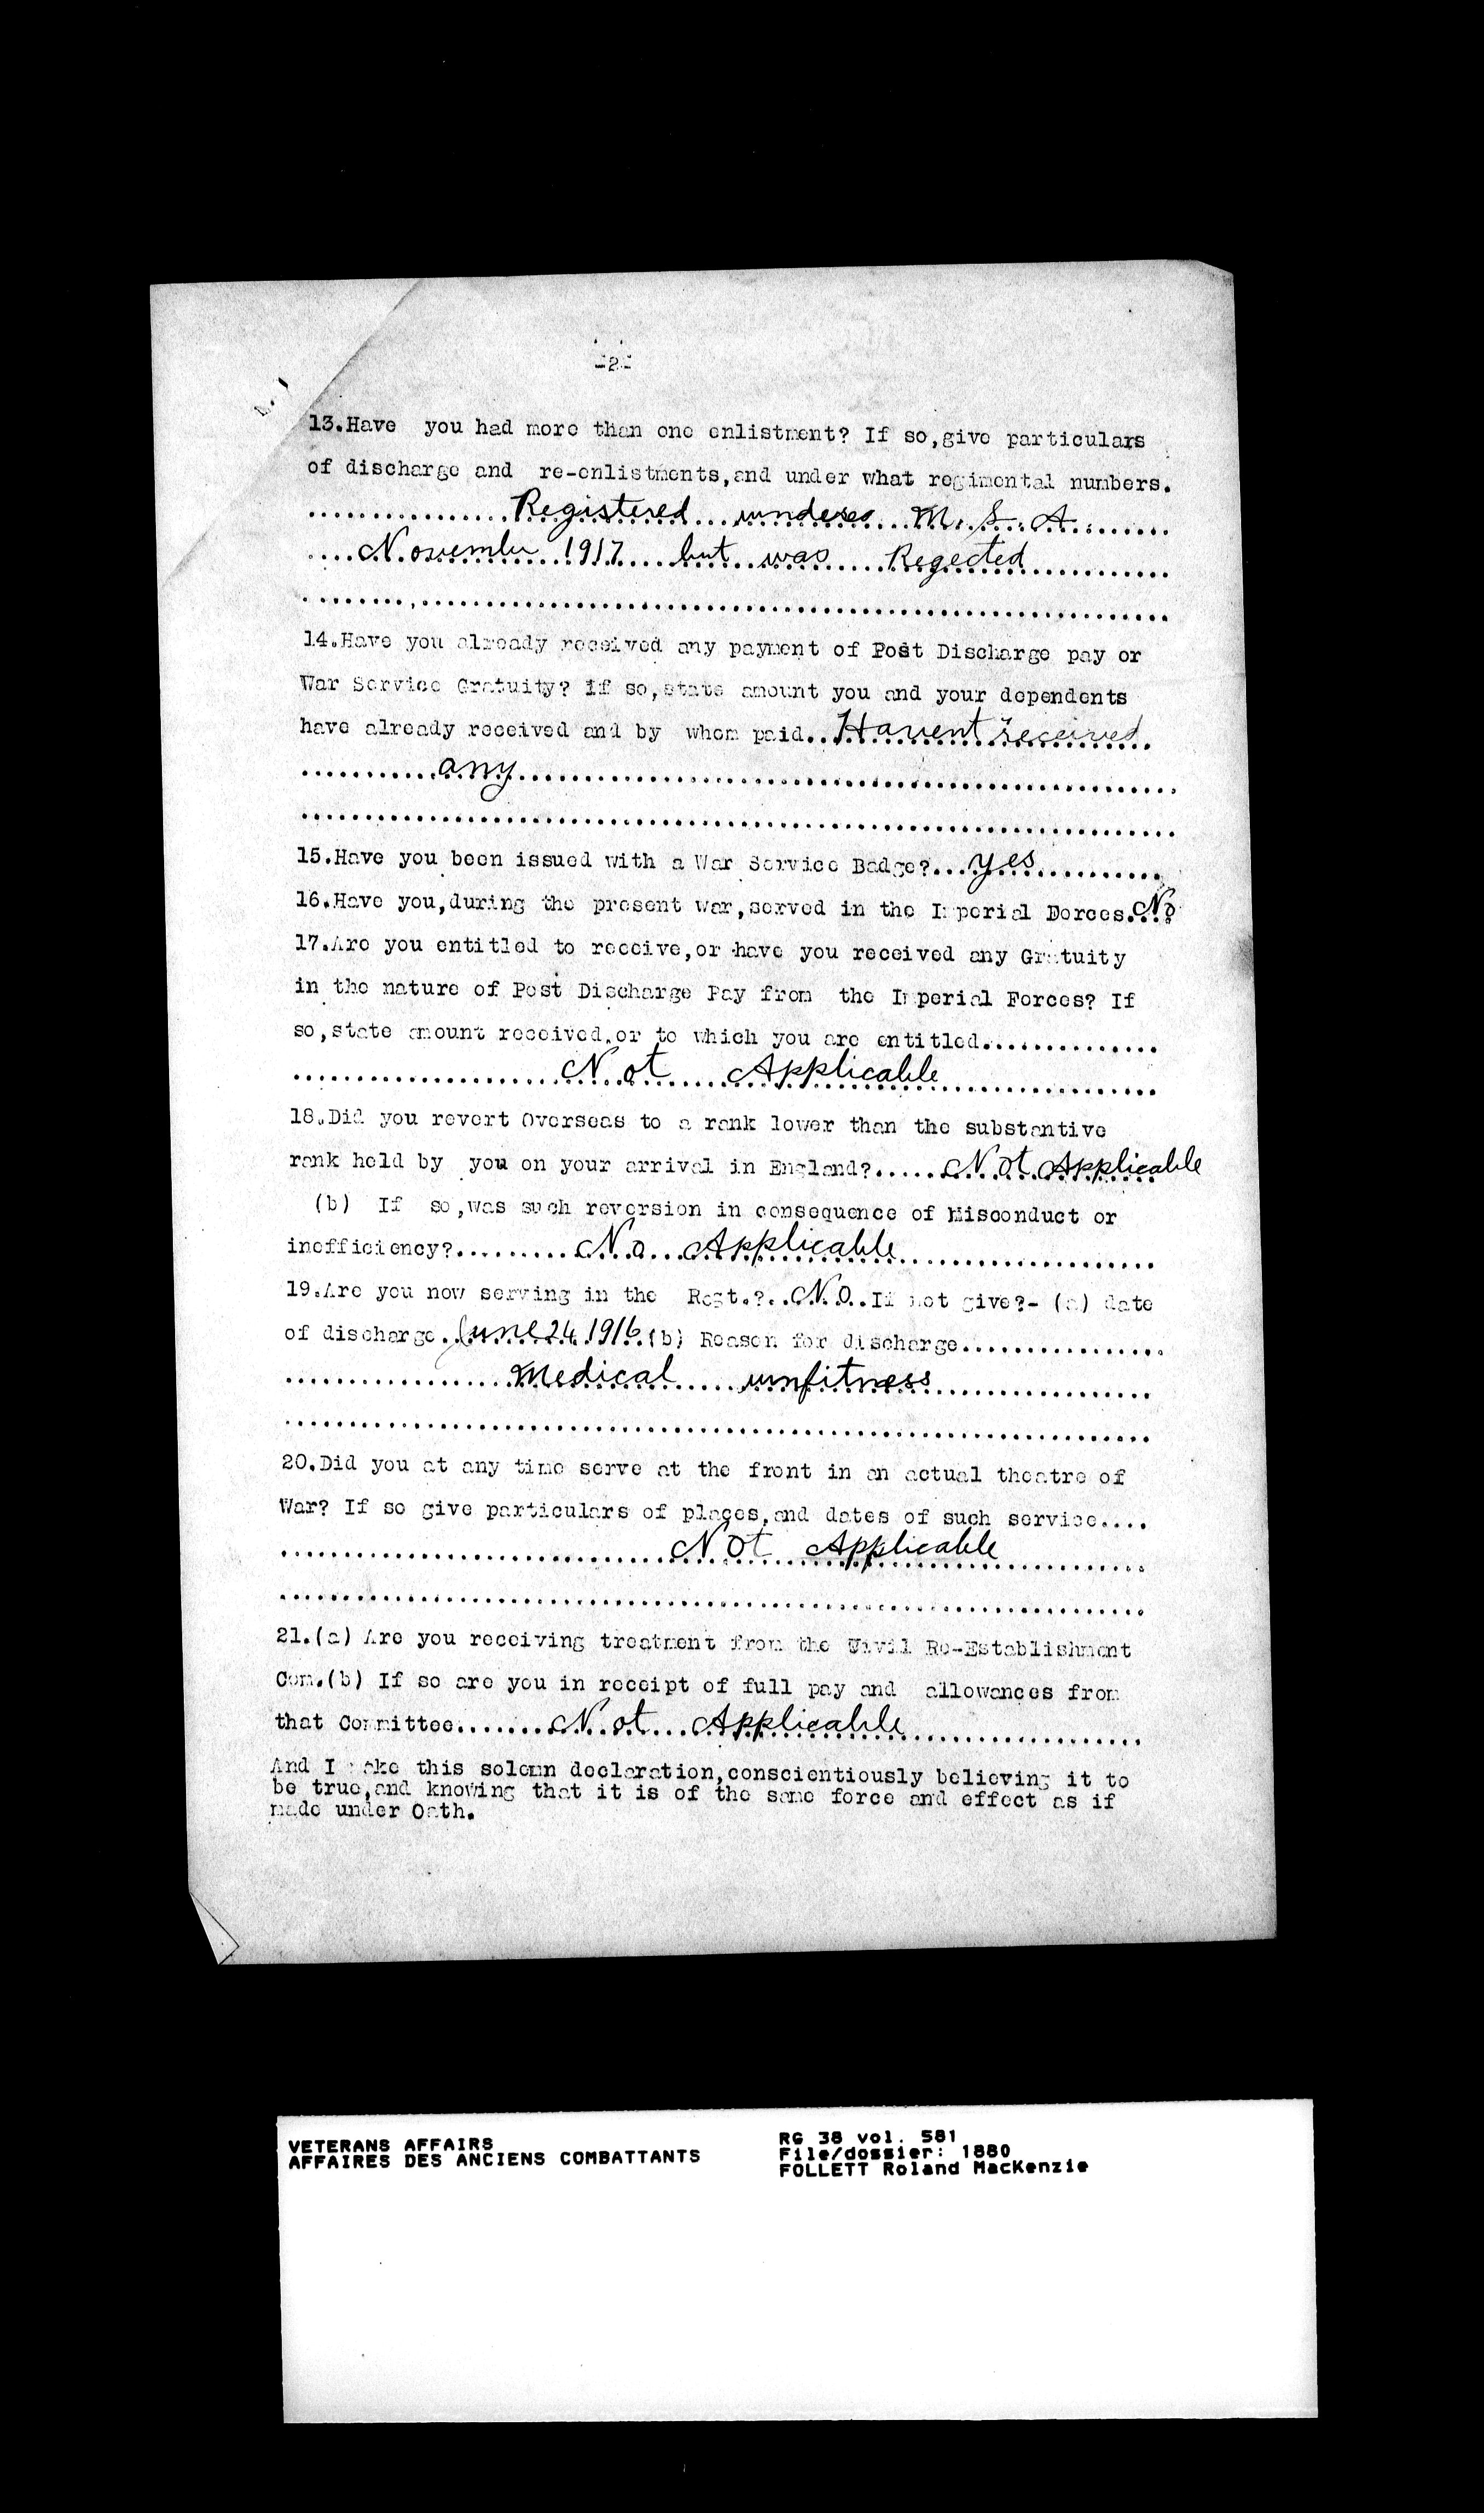 -2-
13.Have you had more than one enlistment? If so,give particulars
of discharge and re-enlistments,and under what regimental numbers.
Registered under M. S. A.
November 1917 but was Regected
14.Have you already received any payment of Post Discharge pay or
War Service Gratuity? If so,state amount you and your dependents
have already received and by whom paid...Havent received
any
15.Have you been issued with a War Service Badge?....yes
16.Have you,during the present war,served in the Imperial Forces.No
17.Are you entitled to receive,or have you received any Gratuity
in the nature of Post Discharge Pay from the Imperial Forces? If
so,state amount received,or to which you are entitled...............
Not Applicable
18.Did you revert Overseas to a rank lower than the substantive
rank held by you on your arrival in England?.....Not Applicable
(b) If so,was such reversion in consequence of Misconduct or
inefficiency?.........No Applicable
19.Are you now serving in the Regt.?..No..If not give?- (a) date
of discharge.June 24 1916.(b) Reason for discharge................
Medical unfitness
20.Did you at any time serve at the front in an actual theatre of
War? If so give particulars of places,and dates of such service....
Not Applicable
21.(a) Are you receiving treatment from the Civil Re-Establishment
Com.(b) If so are you in receipt of full pay and allowances from
that Committee.......Not Applicable
And I make this solemn declaration,conscientiously believing it to
be true,and knowing that it is of the same force and effect as if
made under Oath.
VETERANS AFFAIRS
AFFAIRES DES ANCIENS COMBATTANTS
RG 38 vol. 581
File/dossier: 1880
FOLLETT Roland MacKenzie